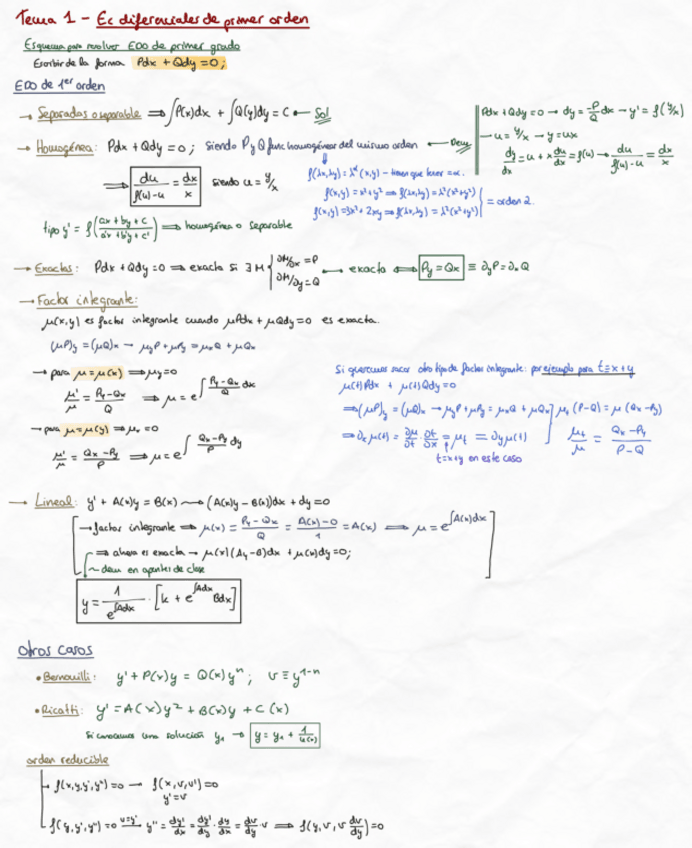 Tema 1 - Ec diferenciales de primer orden
Esquema para resolver EDO de primer grado
Escribir de la forma Pdx + Qdy = 0;
EDO de 1er orden
→ Separadas o separable ⟹ ∫P(x)dx + ∫Q(y)dy = C ← Sol
→ Homogénea: Pdx + Qdy = 0; siendo P y Q func homogéneas del mismo orden ← Dem
Pdx + Qdy = 0 → dy = -P/Q dx → y' = f(y/x)
→ u = y/x → y = ux
dy/dx = u + x du/dx = f(u) → du/(f(u)-u) = dx/x
⟹ du/(f(u)-u) = dx/x siendo u = y/x
f(λx,λy) = λ^α(x,y) - tienen que tener = α.
f(x,y) = x²+y² ⟹ f(λx,λy) = λ²(x²+y²)
f(x,y) = 3x² + 2xy ⟹ f(λx,λy) = λ²(x²+y²)
= orden 2.
tipo y' = f((ax+by+c)/(a'x+b'y+c')) ⟹ homogénea o separable
→ Exactas: Pdx + Qdy = 0 ⟹ exacta si ∃ M { ∂M/∂x = P ∂M/∂y = Q ← exacta ⟺ Py = Qx ≡ ∂yP = ∂xQ
→ Factor integrante:
μ(x,y) es factor integrante cuando μPdx + μQdy = 0 es exacta.
(μP)y = (μQ)x → μyP + μPy = μxQ + μQx
→ para μ = μ(x) ⟹ μy = 0
μ'/μ = (Py-Qx)/Q ⟹ μ = e^∫(Py-Qx)/Q dx
→ para μ = μ(y) ⟹ μx = 0
μ'/μ = (Qx-Py)/P ⟹ μ = e^∫(Qx-Py)/P dy
Si queremos sacar otro tipo de factor integrante: por ejemplo para t = x+y
μ(t)Pdx + μ(t)Qdy = 0
⟹ (μP)y = (μQ)x → μyP + μPy = μxQ + μQx
⟹ ∂xμ(t) = ∂μ/∂t · ∂t/∂x = μt = ∂yμ(t)
t=x+y en este caso
μt (P-Q) = μ (Qx-Py)
μt/μ = (Qx-Py)/(P-Q)
→ Lineal: y' + A(x)y = B(x) → (A(x)y - B(x))dx + dy = 0
→ factor integrante ⟹ μ(x) = (Py-Qx)/Q = (A(x)-0)/1 = A(x) ⟹ μ = e^∫A(x)dx
⟹ ahora es exacta → μ(x)(Ay-B)dx + μ(x)dy = 0;
~ dem en apuntes de clase
y = 1/e^∫Adx · [k + e^∫Adx Bdx]
Otros casos
• Bernouilli: y' + P(x)y = Q(x)yⁿ; v ≡ y^1-n
• Ricatti: y' = A(x)y² + B(x)y + C(x)
Si conocemos una solución y₁ → y = y₁ + 1/u(x)
orden reducible
→ f(x,y,y',y'') = 0 → f(x,v,v') = 0
y' = v
→ f(y,y',y'') = 0 v=y' → y'' = dy'/dx = dy'/dy · dy/dx = dv/dy · v ⟹ f(y,v,v dv/dy) = 0